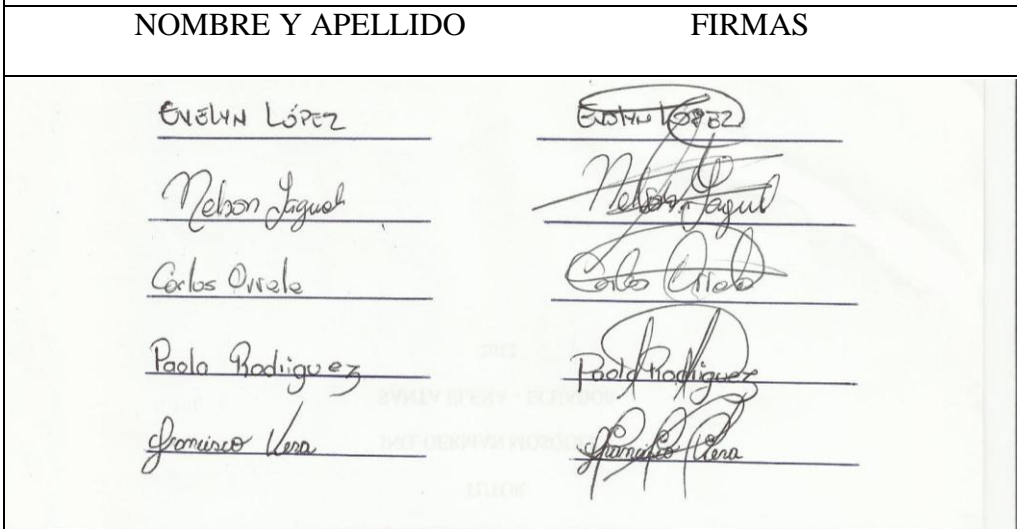 NOMBRE Y APELLIDO FIRMAS
EVELYN LÓPEZ EVELYN LÓPEZ
Nelson Yagual Nelson Yagual
Carlos Orrala Carlos Orrala
Paola Rodriguez Paola Rodriguez
Francisco Vera Francisco Vera
SANTA ELENA - ECUADOR